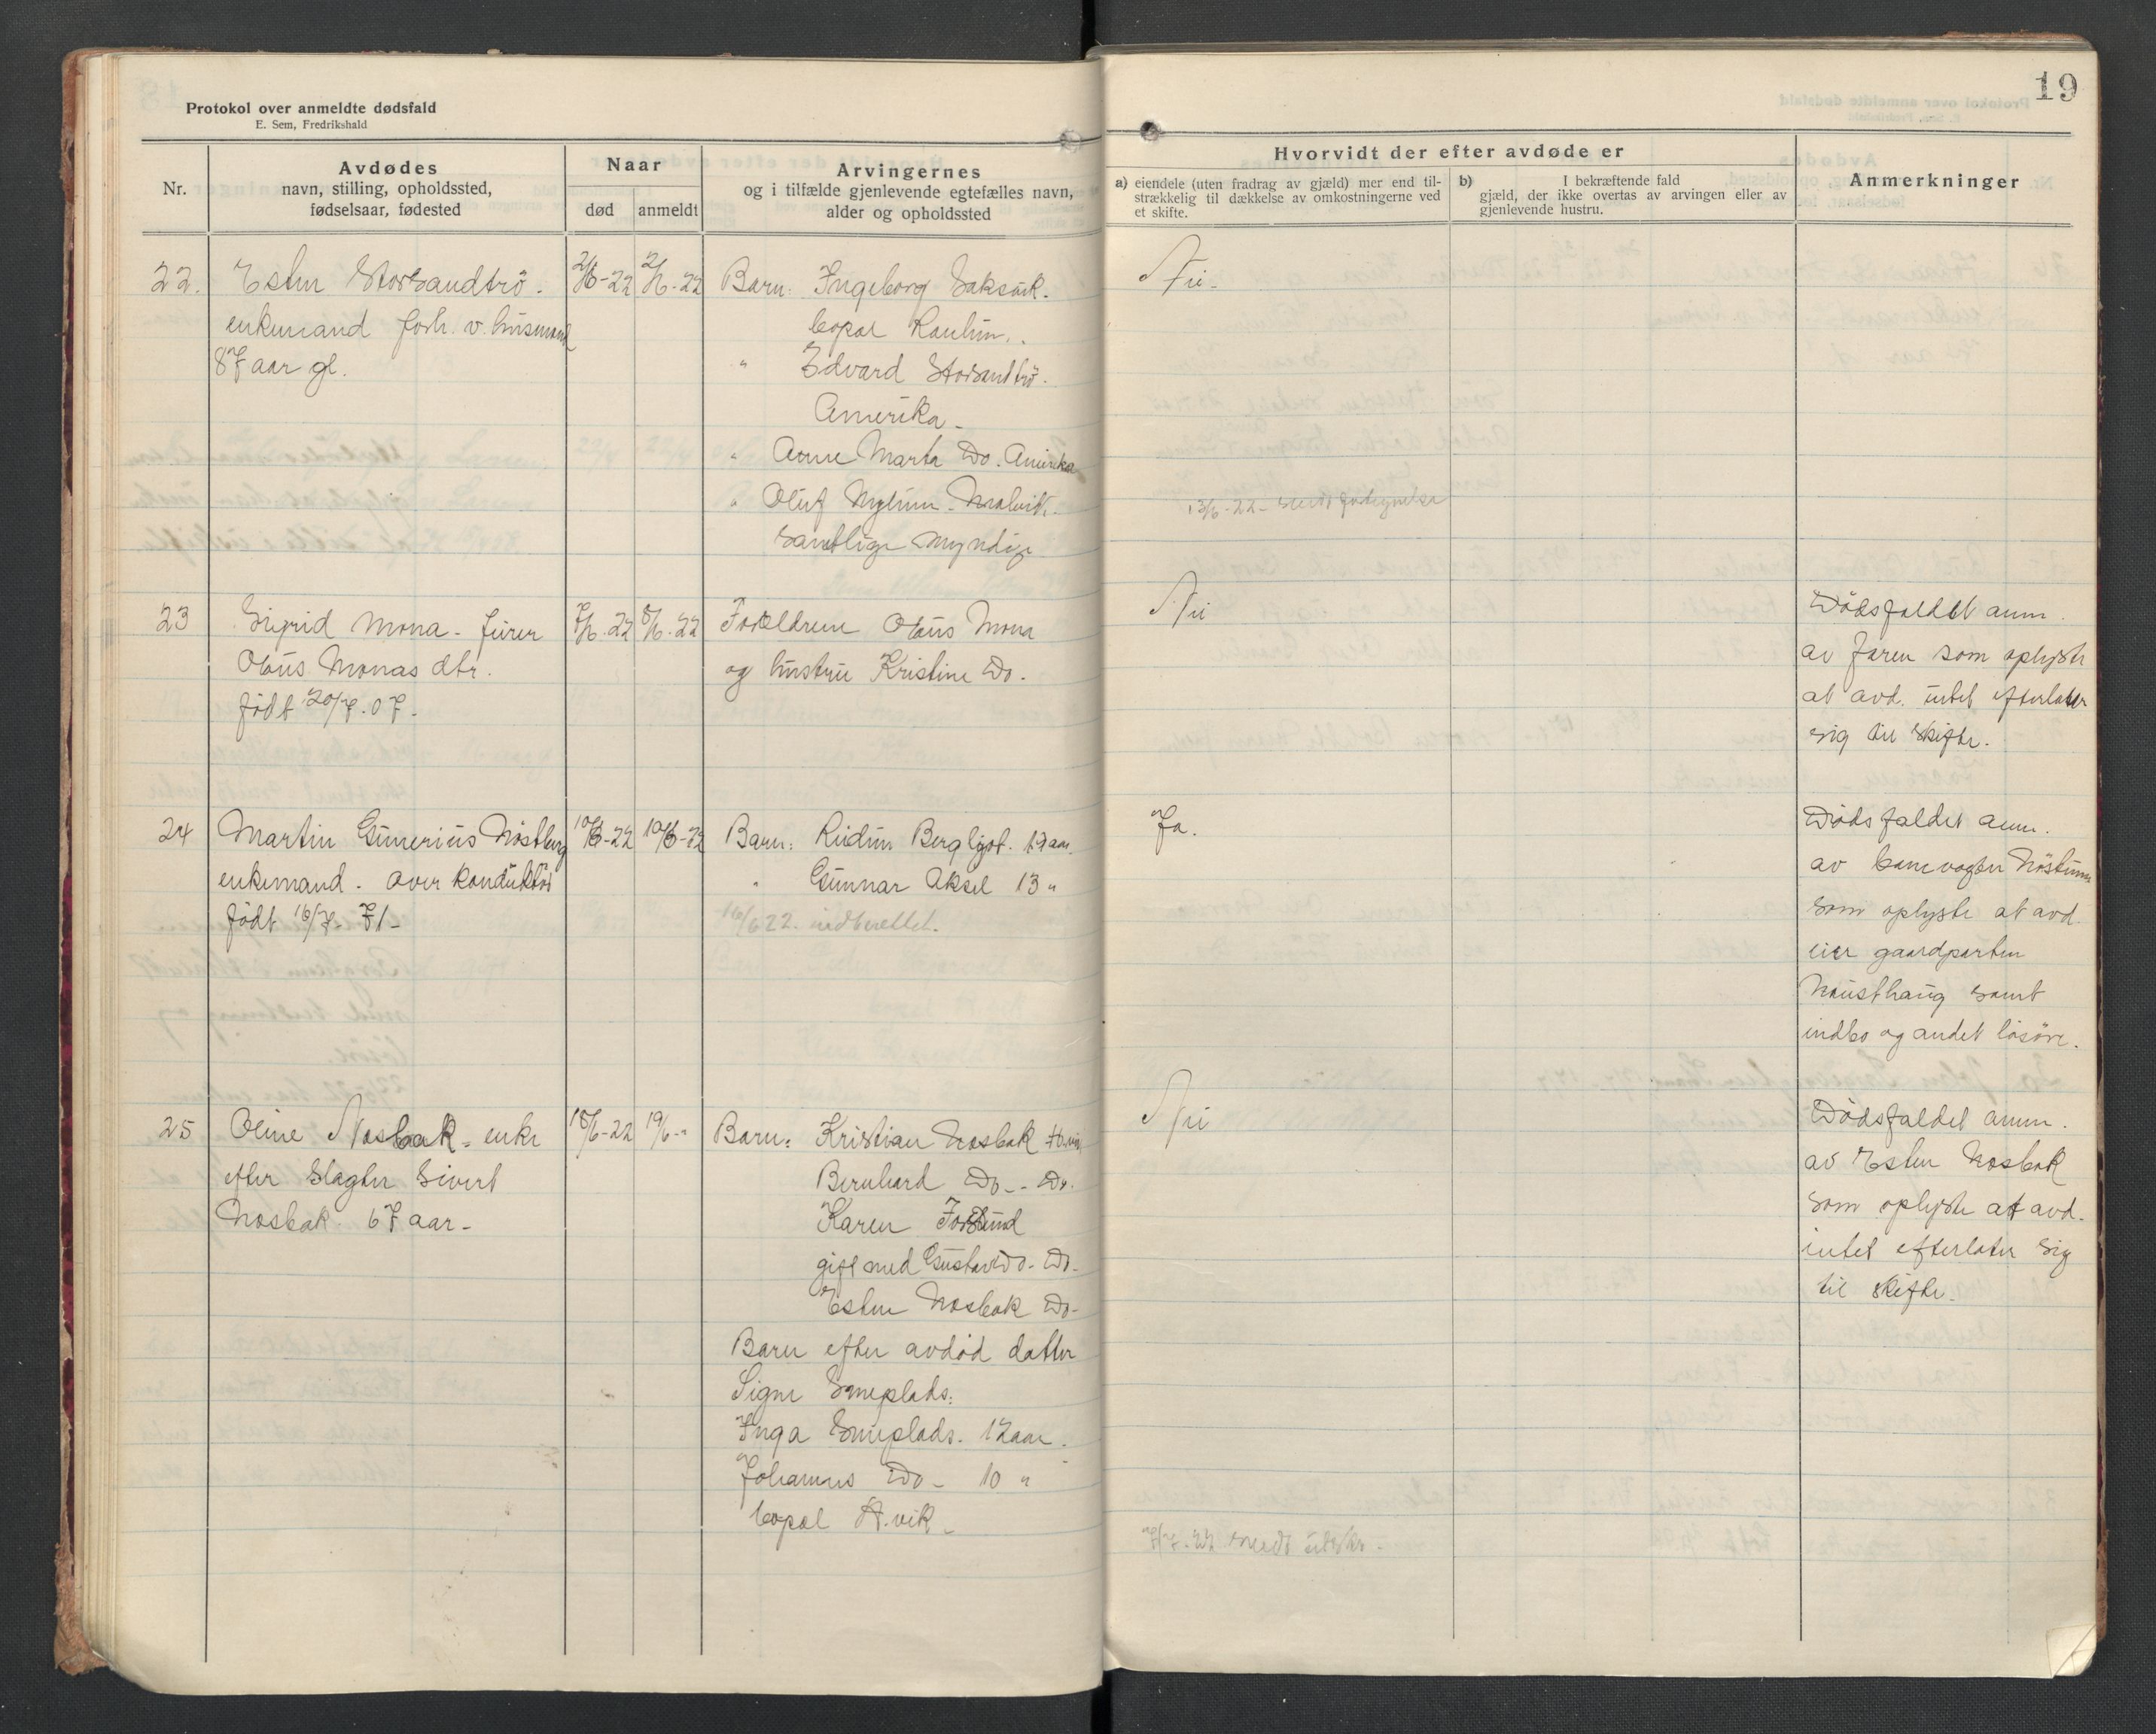 19
Protokol over anmeldte dødsfald
E. Sem, Fredrikshald
Nr.
Avdødes
navn, stilling, opholdssted,
fødselsaar, fødested
Naar
død
anmeldt
Arvingernes
og i tilfælde gjenlevende egtefælles navn,
alder og opholdssted
Hvorvidt der efter avdøde er
a) eiendele (uten fradrag av gjæld) mer end til-
strækkelig til dækkelse av omkostningerne ved
et skifte.
b) I bekræftende fald
gjæld, der ikke overtas av arvingen eller av
gjenlevende hustru.
Anmerkninger
22. Esten Storsandtrö.
enkemand forh. v. husmand
87 aar gl.
2/6-22 2/6-22
Barn: Ingeborg
bopæl
" Edvard Storsandtrö.
Amerika.
" Anne Marta Do. Amerika
" Oluf
samtlige myndige
Nei.
13/6-22 - sendt
23 Sigrid Mona -
Olaus Monas dtr.
født 20/7.07.
7/6.22 8/6.22
Forældrene Olaus Mona
og hustru Kristine Do.
Nei
Dödsfaldet anm.
av faren som oplyste
at avd. intet efterlater
sig til skifte.
24 Martin Gunerius Nöstberg
enkemand. overkonduktör
født 16/7-71-
10/6-22 10/6-22
Barn: Bergljot. aar.
" Gunnar Aksel 13 "
16/6 22. indberettet.
Ja.
Dödsfaldet anm.
av banevogter
som oplyste at avd.
eier gaardparten
Nausthaug samt
indbo og andet lösöre.
25 Oline Nosbak - enke
efter slagter Sivert
Nosbak. 67 aar-
18/6-22 19/6-"
Barn: Kristian Nosbak H.vik
Bernhard Do - - Do.
Karen Forslund
gift med Gustav Do - Do.
Esten Nosbak Do-
Barn efter avdöd datter
Signe Smeplads.
Inga Smeplads. 12 aar.
Johannes Do - 10 "
bopæl H.vik.
Nei
7/7-22 sendt utskr.
Dödsfaldet anm.
av Esten Nosbak
som oplyste at avd.
intet efterlater sig
til skifte.